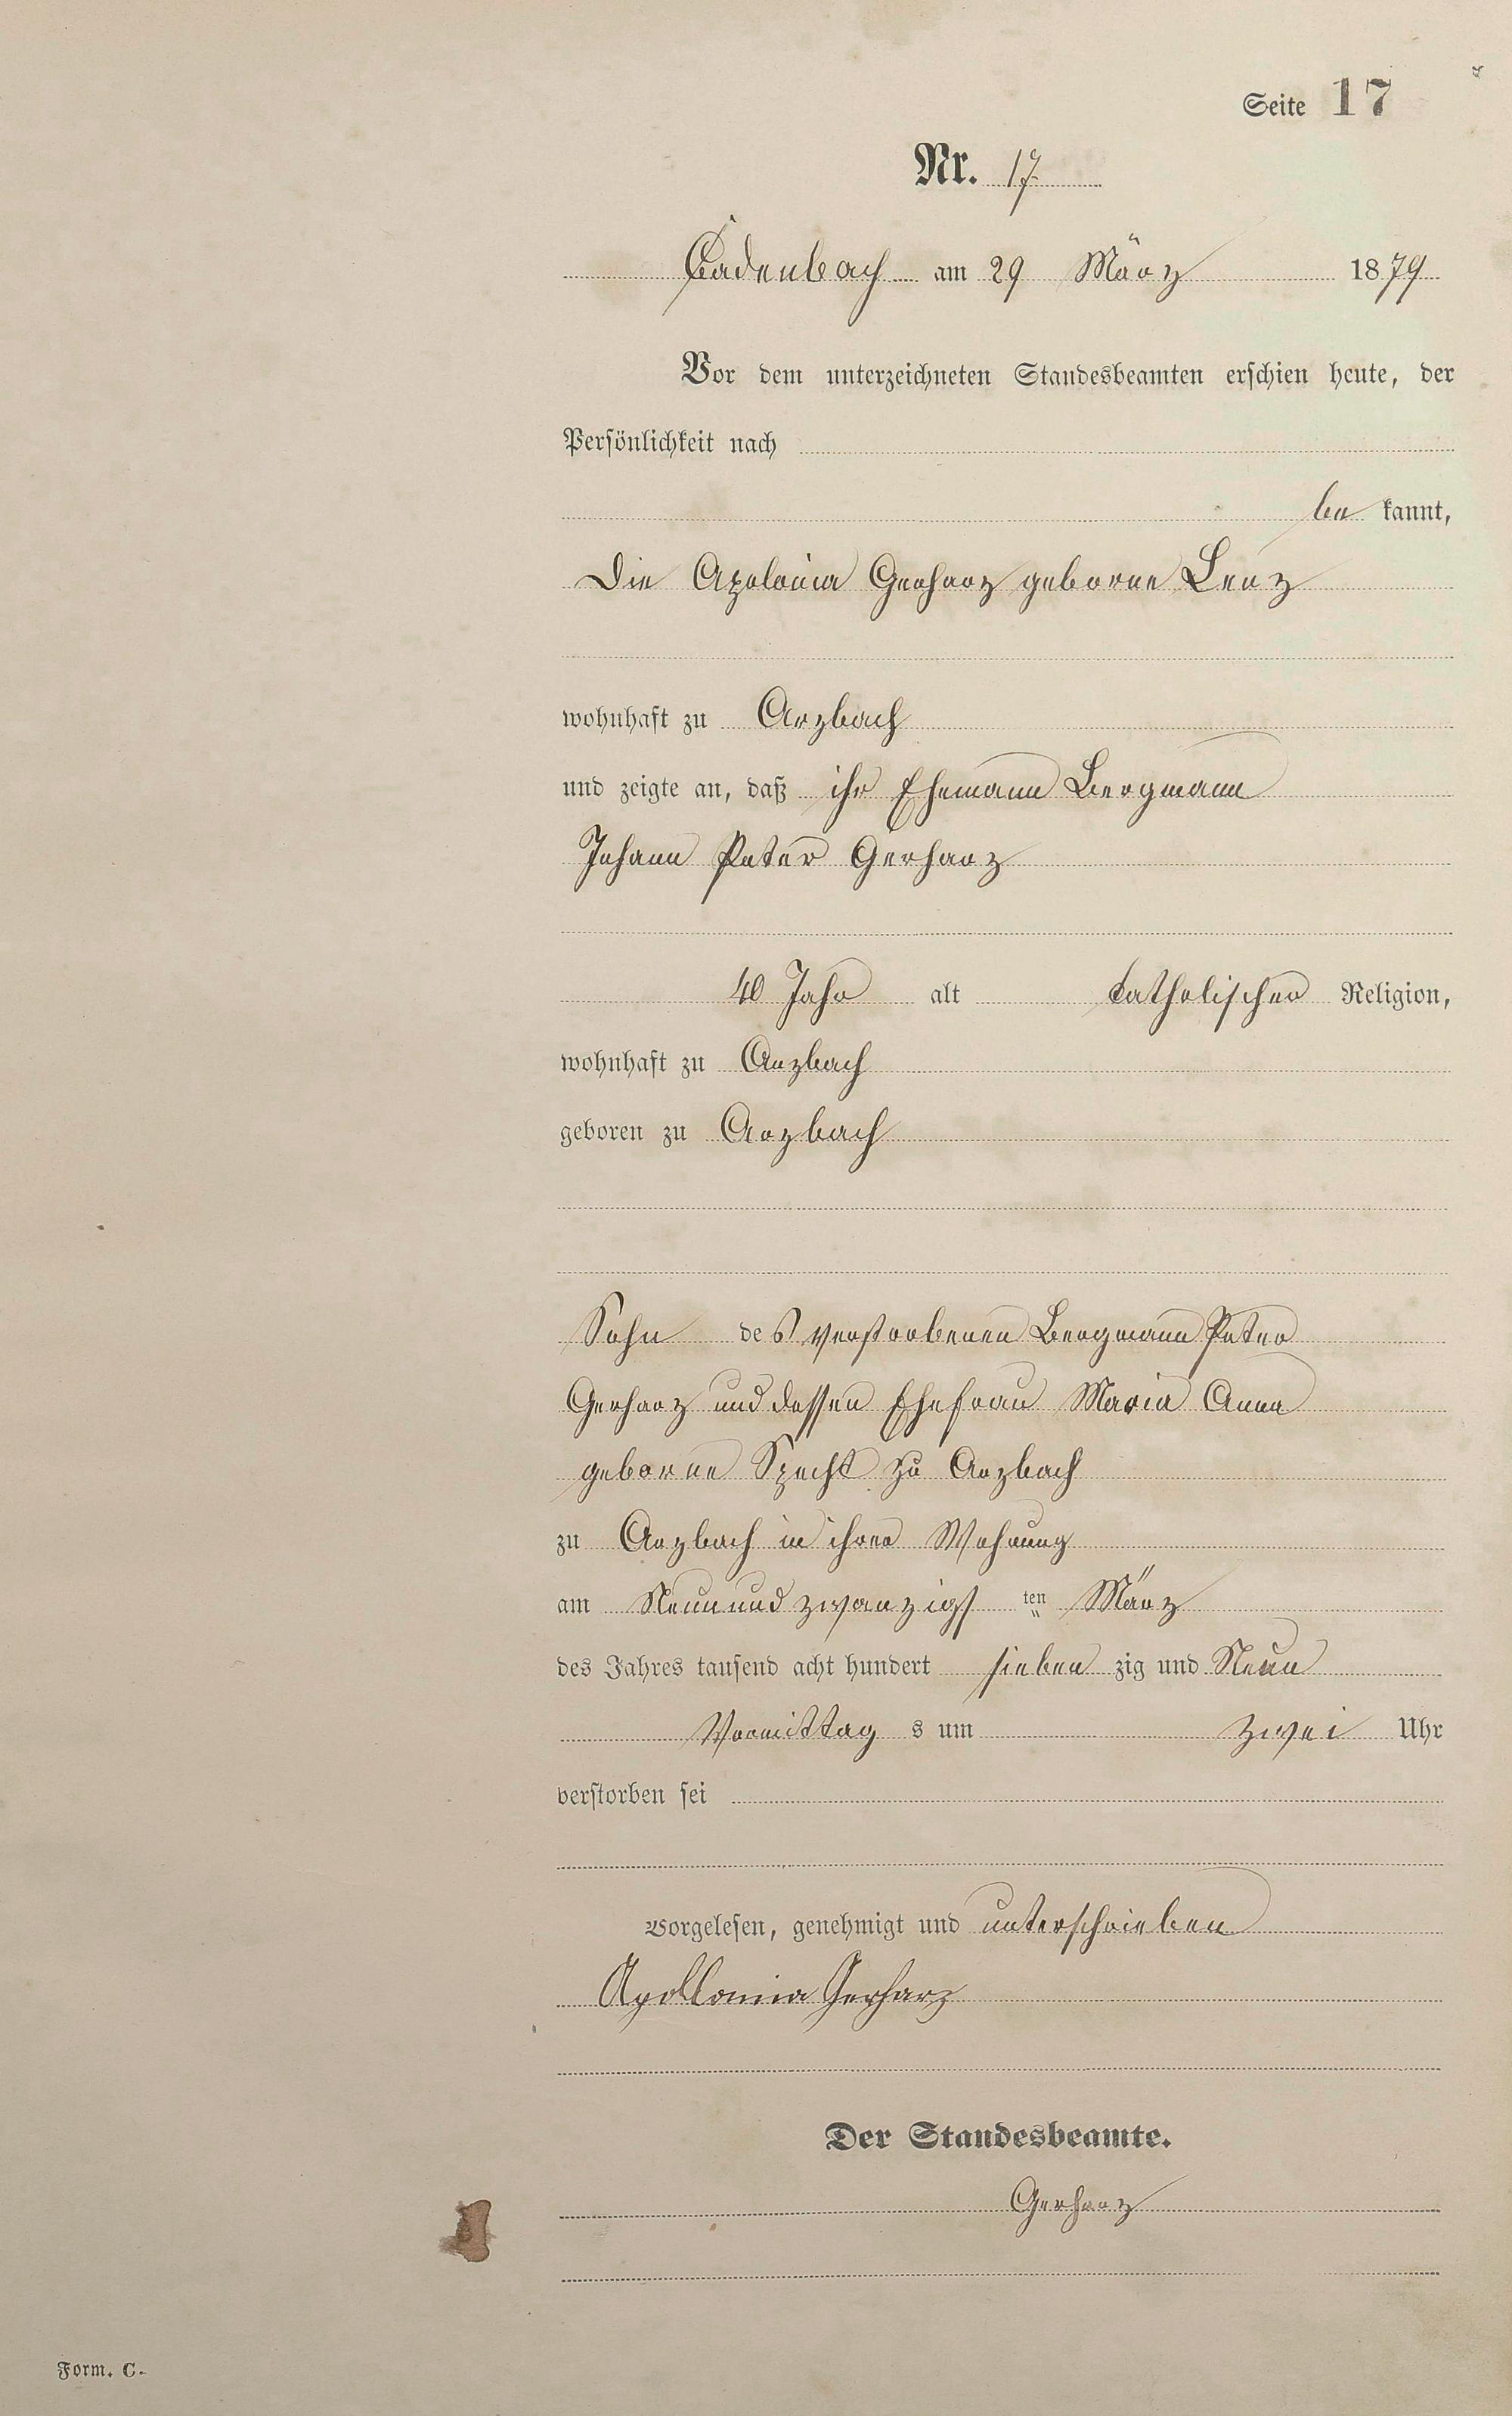 Seite 17
Nr. 17
Cadenbach am 29 März 1879
Vor dem unterzeichneten Standesbeamten erschien heute, der
Persönlichkeit nach
be kannt,
Die Apolonia Gerharz geborne Lenz
wohnhaft zu Arzbach
und zeigte an, daß ihr Ehemann Bergmann
Johann Peter Gerharz
40 Jahr alt katholischer Religion,
wohnhaft zu Arzbach
geboren zu Arzbach
Sohn des verstorbenen Bergmann Peter
Gerharz und dessen Ehefrau Maria Anna
geborne Specht zu Arzbach
zu Arzbach in ihrer Wohnung
am Neun und zwanzigs ten März
des Jahres tausend acht hundert sieben zig und Neun
Vormittag s um zwei Uhr
verstorben sei
Vorgelesen, genehmigt und unterschrieben
Apollonia Gerharz
Der Standesbeamte.
Gerharz
Form. C.